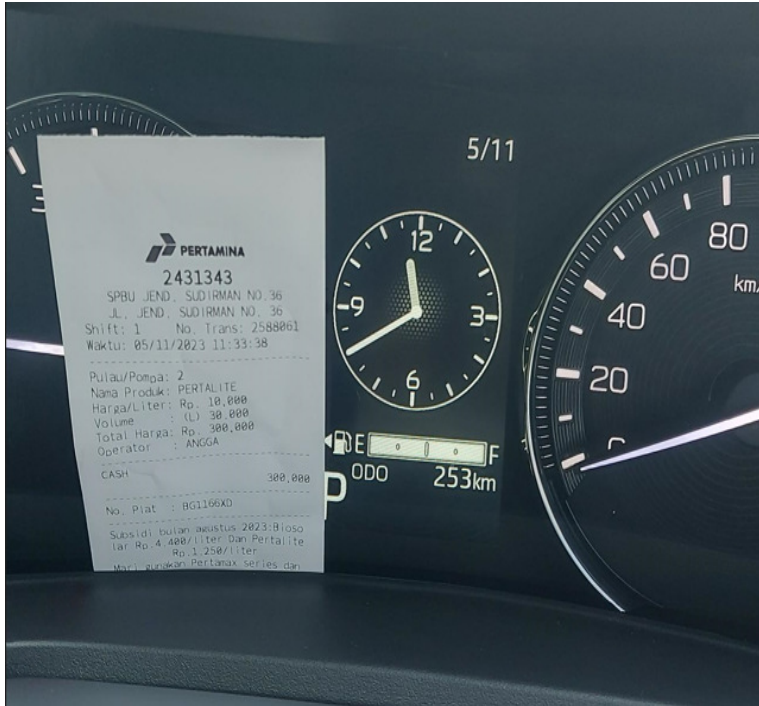 PERTAMINA
2431343
SPBU JEND. SUDIRMAN NO.36
JL. JEND. SUDIRMAN NO. 36
Shift: 1 No. Trans: 2588061
Waktu: 05/11/2023 11:33:38
Pulau/Pompa: 2
Nama Produk: PERTALITE
Harga/Liter: Rp. 10,000
Volume : (L) 30.000
Total Harga: Rp. 300,000
Operator : ANGGA
CASH
300,000
No. Plat : BG1166XD
Subsidi bulan agustus 2023:Bioso
lar Rp.4.400/liter Dan Pertalite
Rp.1.250/liter
Mari gunakan Pertamax series dan
5/11
12
9
3
6
E
F
P
ODO 253km
80
km/
60
40
20